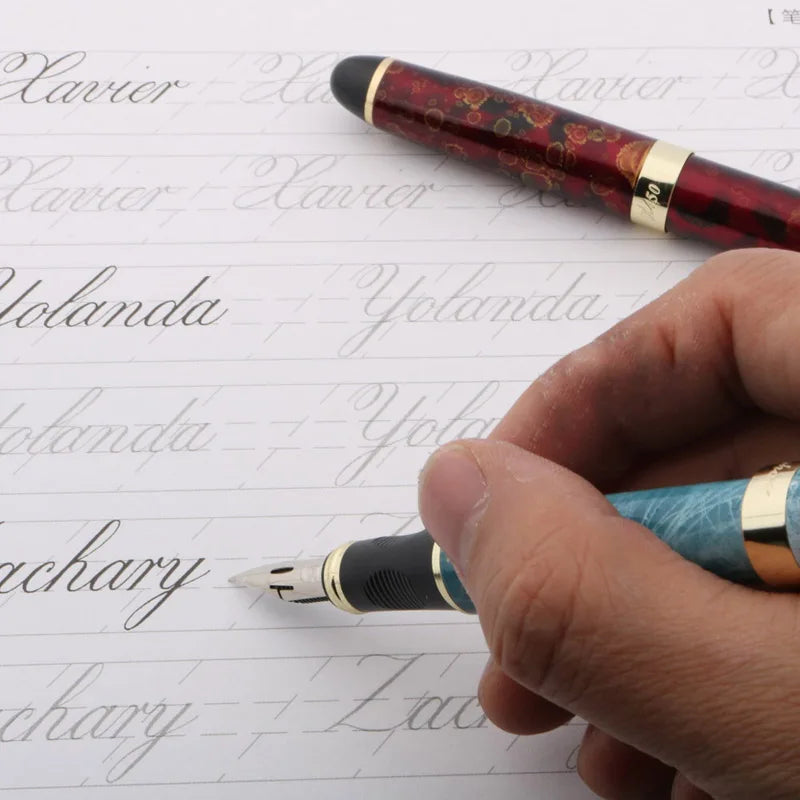 【笔
Xavier Xavier Xavier
Xavier Xavier
Yolanda Yolanda
Yolanda Yola
achary
achary Zac
450